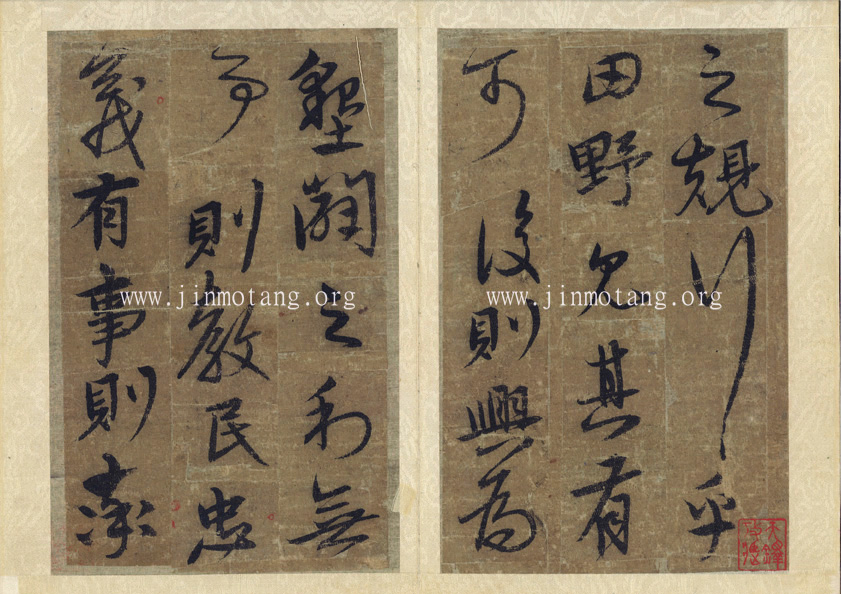 之規行乎
田野見其有
可復則興為
墾闢之利無
事則教民忠
義有事則率
www.jinmotang.org
www.jinmotang.org